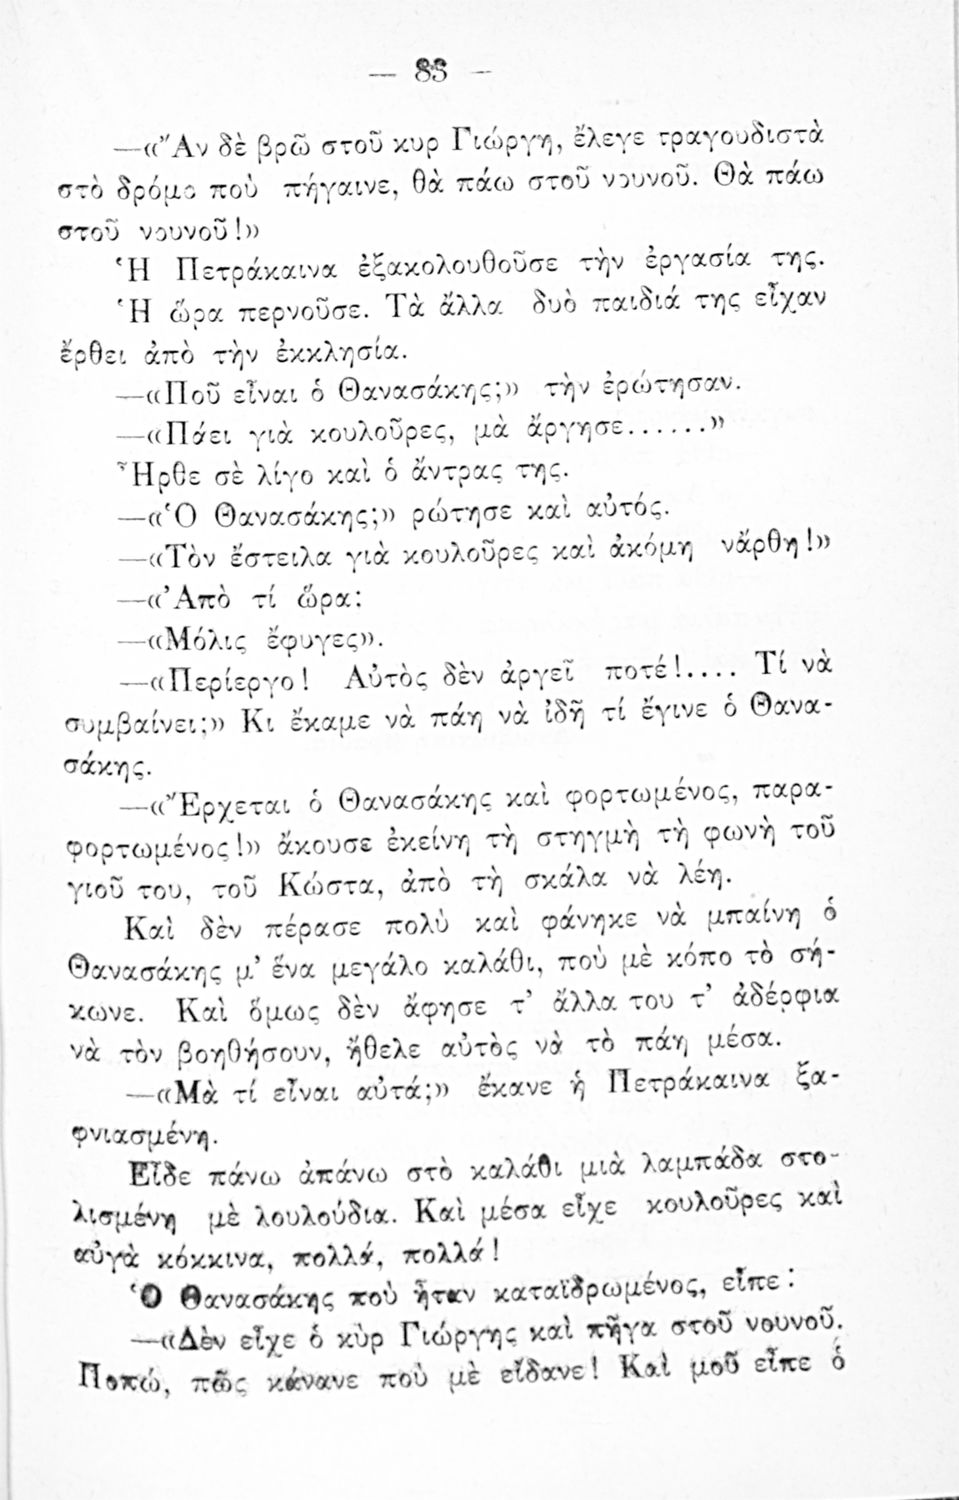 — 83 —
—«Ἂν δὲ βρῶ στοῦ κυρ Γιώργη, ἔλεγε τραγουδιστὰ
στὸ δρόμο ποὺ πήγαινε, θὰ πάω στοῦ νουνοῦ. Θὰ πάω
στοῦ νουνοῦ!»
Ἡ Πετράκαινα ἐξακολουθοῦσε τὴν ἐργασία της.
Ἡ ὥρα περνοῦσε. Τὰ ἄλλα δυὸ παιδιά της εἶχαν
ἔρθει ἀπὸ τὴν ἐκκλησία.
—«Ποῦ εἶναι ὁ Θανασάκης;» τὴν ἐρώτησαν.
—«Πάει γιὰ κουλοῦρες, μὰ ἄργησε......»
Ἦρθε σὲ λίγο καὶ ὁ ἄντρας της.
—«Ὁ Θανασάκης;» ρώτησε καὶ αὐτός.
—«Τὸν ἔστειλα γιὰ κουλοῦρες καὶ ἀκόμη νἄρθη!»
—«Ἀπὸ τί ὥρα;
—«Μόλις ἔφυγες».
—«Περίεργο! Αὐτὸς δὲν ἀργεῖ ποτέ!.... Τί νὰ
συμβαίνει;» Κι ἔκαμε νὰ πάη νὰ ἰδῆ τί ἔγινε ὁ Θανα-
σάκης.
—«Ἔρχεται ὁ Θανασάκης καὶ φορτωμένος, παρα-
φορτωμένος!» ἄκουσε ἐκείνη τὴ στηγμὴ τὴ φωνὴ τοῦ
γιοῦ του, τοῦ Κώστα, ἀπὸ τὴ σκάλα νὰ λέη.
Καὶ δὲν πέρασε πολὺ καὶ φάνηκε νὰ μπαίνη ὁ
Θανασάκης μ’ ἕνα μεγάλο καλάθι, ποὺ μὲ κόπο τὸ σή-
κωνε. Καὶ ὅμως δὲν ἄφησε τ’ ἄλλα του τ’ ἀδέρφια
νὰ τὸν βοηθήσουν, ἤθελε αὐτὸς νὰ τὸ πάη μέσα.
—«Μὰ τί εἶναι αὐτά;» ἔκανε ἡ Πετράκαινα ξα-
φνιασμένη.
Εἶδε πάνω ἀπάνω στὸ καλάθι μιὰ λαμπάδα στο-
λισμένη μὲ λουλούδια. Καὶ μέσα εἶχε κουλοῦρες καὶ
αὐγὰ κόκκινα, πολλά, πολλά!
Ὁ Θανασάκης ποὺ ἦταν καταϊδρωμένος, εἶπε:
—«Δὲν εἶχε ὁ κὺρ Γιώργης καὶ πῆγα στοῦ νουνοῦ.
Ποπώ, πῶς κάνανε ποὺ μὲ εἴδανε! Καὶ μοῦ εἶπε ὁ